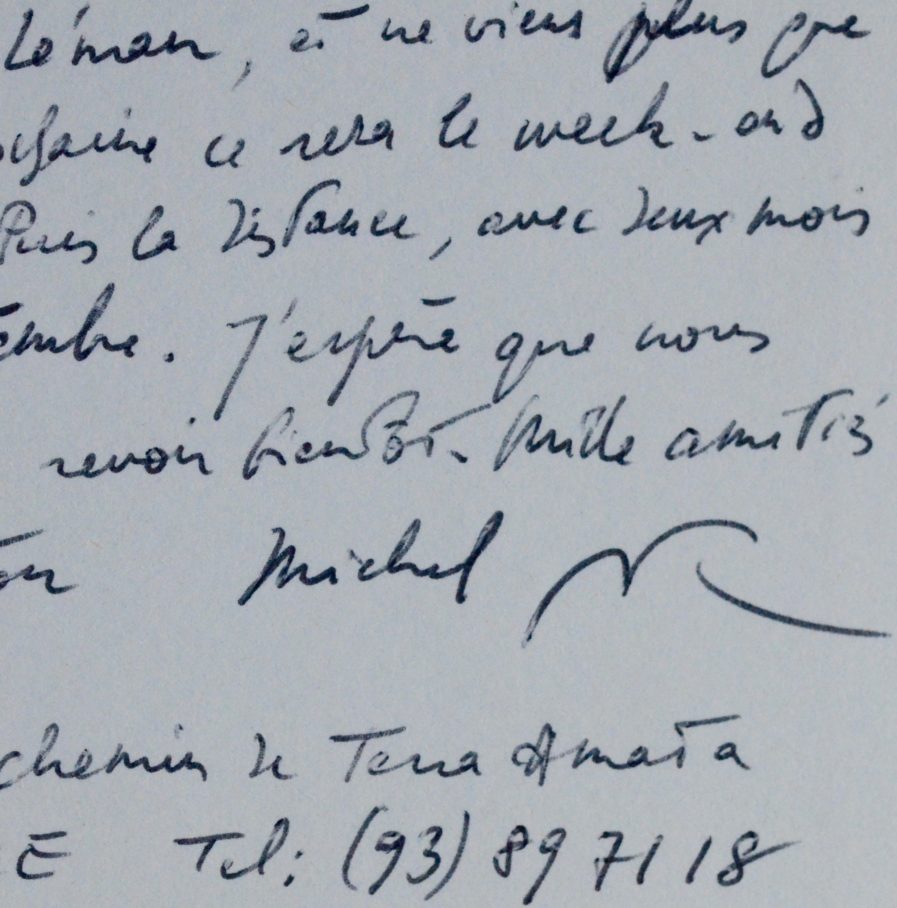 Léman, et ne viens plus que
ochaine ce sera le week-end
Puis la distance, avec deux mois
embre. J'espère que nous
revoir bientôt. Mille amitiés
Michel
chemin de Terra Amata
E Tel: (93) 89 71 18